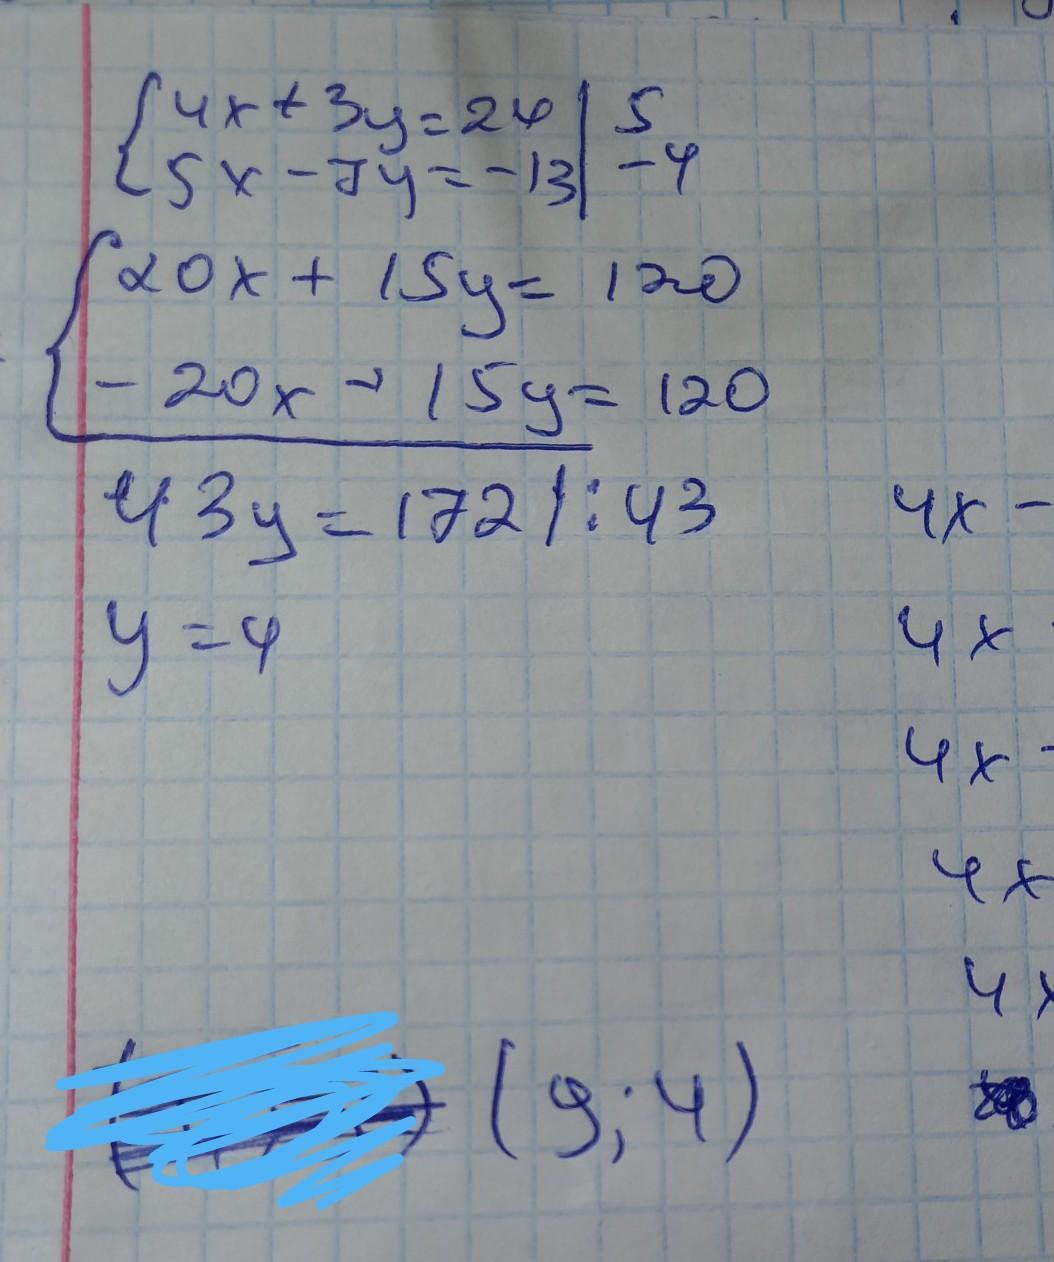 4x + 3y = 24 | 5
5x - 7y = -13 | -4
20x + 15y = 120
- 20x - 15y = 120
43y = 172 |: 43
y = 4
4x -
4x
4x -
4x
4x
(9; 4)